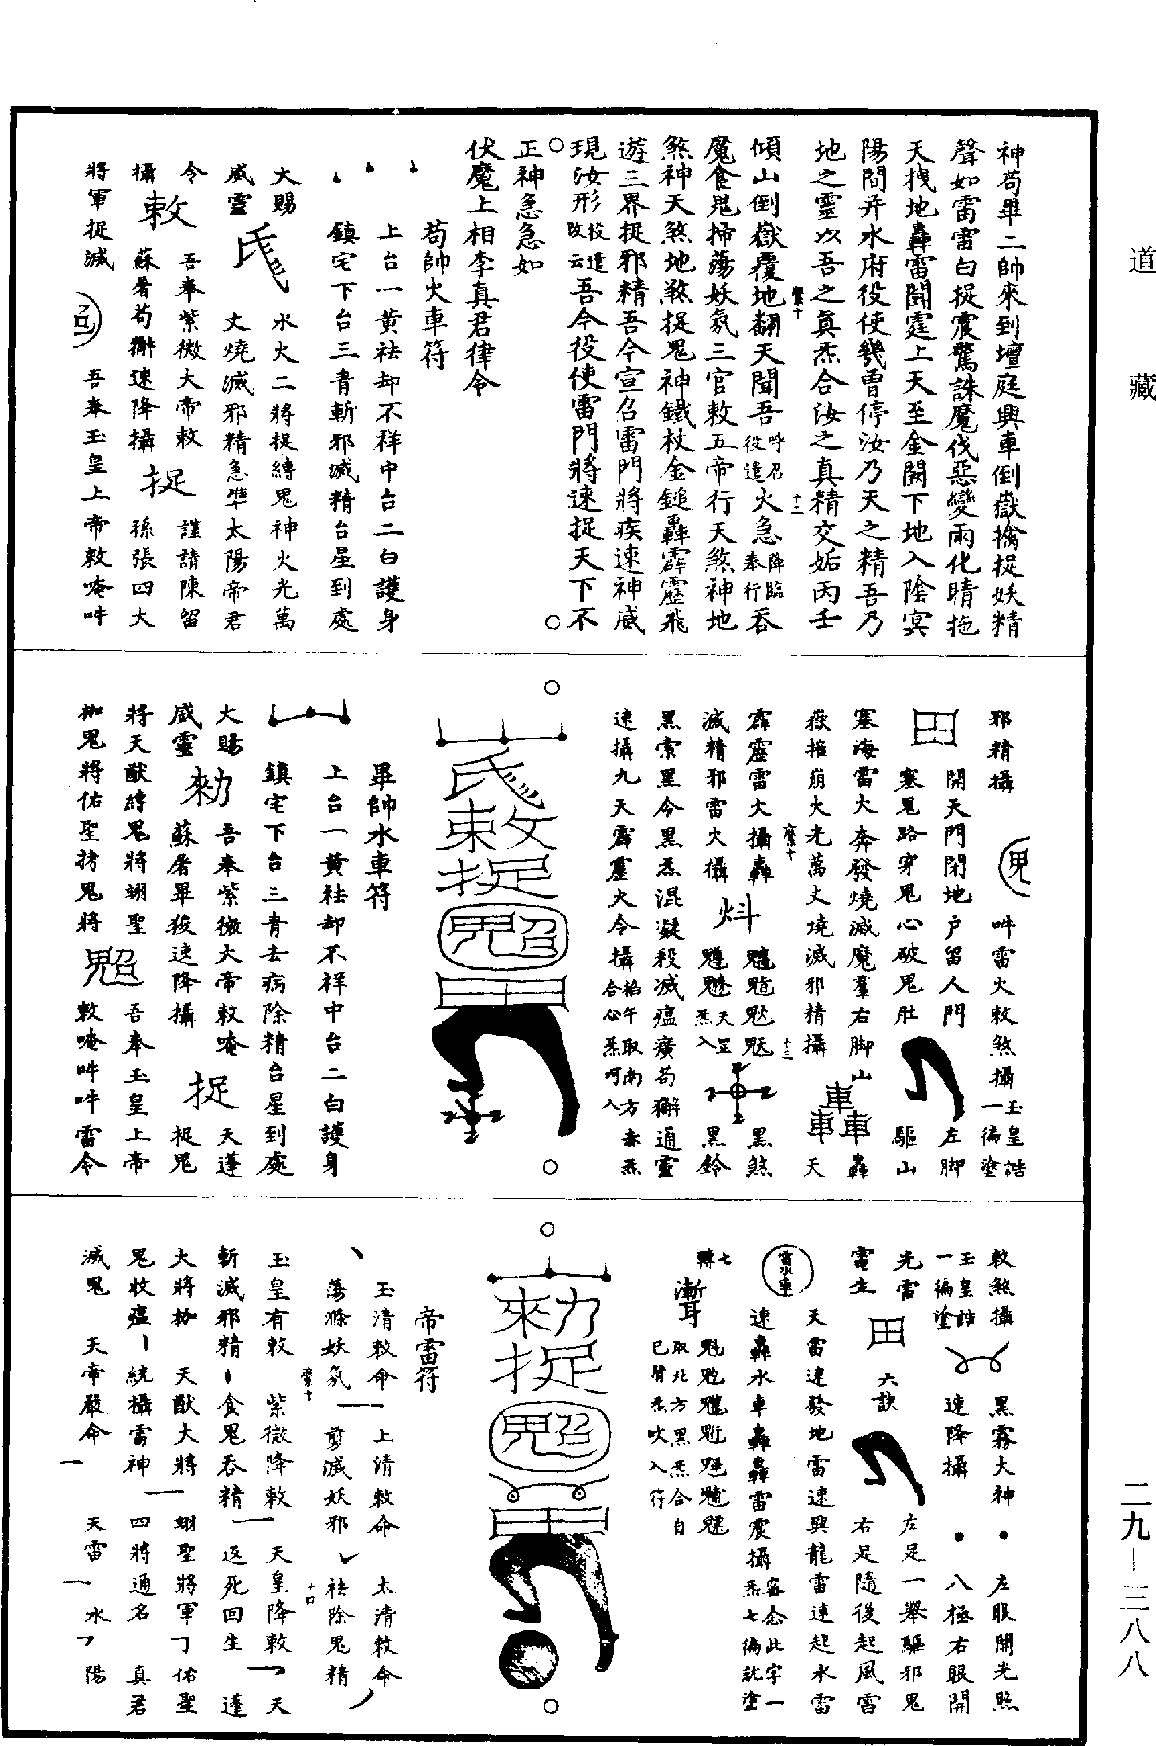 道藏
神茍畢二帥來到壇庭興車倒嶽擒捉妖精
聲如雷雷白捉震驚誅魔伐惡變雨化晴拖
天拽地轟雷閗霆上天至金闕下地入陰冥
陽間并水府役使幾曾停汝乃天之精吾乃
地之靈以吾之真炁合汝之真精交姤丙壬
傾山倒嶽覆地翻天聞吾呼召役遣火急降臨奉行吞
魔食鬼掃蕩妖氛三官敕五帝行天煞神地
煞神天煞地煞捉鬼神鐵杖金鎚轟霹靂飛
遊三界捉邪精吾今宣召雷門將疾速神威
現汝形役遣改云吾今役使雷門將速捉天下不
正神急急如
伏魔上相李真君律令
茍帥火車符
上台一黃祛却不祥中台二白護身
鎮宅下台三青斬邪滅精台星到處
大賜 水火二將捉縛鬼神火光萬
威靈 丈燒滅邪精急準太陽帝君
令 吾奉紫微大帝敕 謹請陳留
攝 敕 蘇屠茍獬速降攝 捉 孫張四大
將軍捉滅 吾奉玉皇上帝敕唵吽
邪精攝 吽雷火敕煞攝玉皇誥一徧塗
開天門閉地户留人門 左脚
塞鬼路穿鬼心破鬼肚 驅山
塞海雷火奔發燒滅魔羣右脚山 轟
嶽摧崩火光萬丈燒滅邪精攝 車車車 天
霹靂雷火攝轟 黑煞
滅精邪雷火攝 黑鈴
黑索黑令黑炁混凝殺滅瘟㾮茍獬通靈
速攝九天霹靂火令攝掐午取南方赤炁合心炁呵入
畢帥水車符
上台一黃祛却不祥中台二白護身
鎮宅下台三青去病除精台星到處
大賜 吾奉紫微大帝敕唵 天蓬
威靈 勑 蘇屠畢殺速降攝 捉 捉鬼
將天猷縛鬼將翊聖 吾奉玉皇上帝
枷鬼將佑聖拷鬼將 敕唵吽吽雷令
敕煞攝 黑霧大神 左眼開光照
玉皇誥一徧塗 速降攝 八極右眼開
光雷 六訣 左足一舉驅邪鬼
電生 田 右足隨後起風雷
天雷速發地雷速興龍雷速起水雷
速轟水車轟轟雷震攝密念此字一炁七徧就塗
七轉
取北方黑炁合自己腎炁吹入符
帝雷符
玉清敕命 上清敕命 太清敕命
蕩滌妖氛 剪滅妖邪 祛除鬼精
玉皇有敕 紫微降敕 天皇降敕 天
斬滅邪精 食鬼吞精 返死回生 蓬
大將 天猷大將 翊聖將軍 佑聖
鬼收瘟 統攝雷神 四將通名 真君
滅鬼 天帝嚴命 天雷 水 陽
二九—三八八